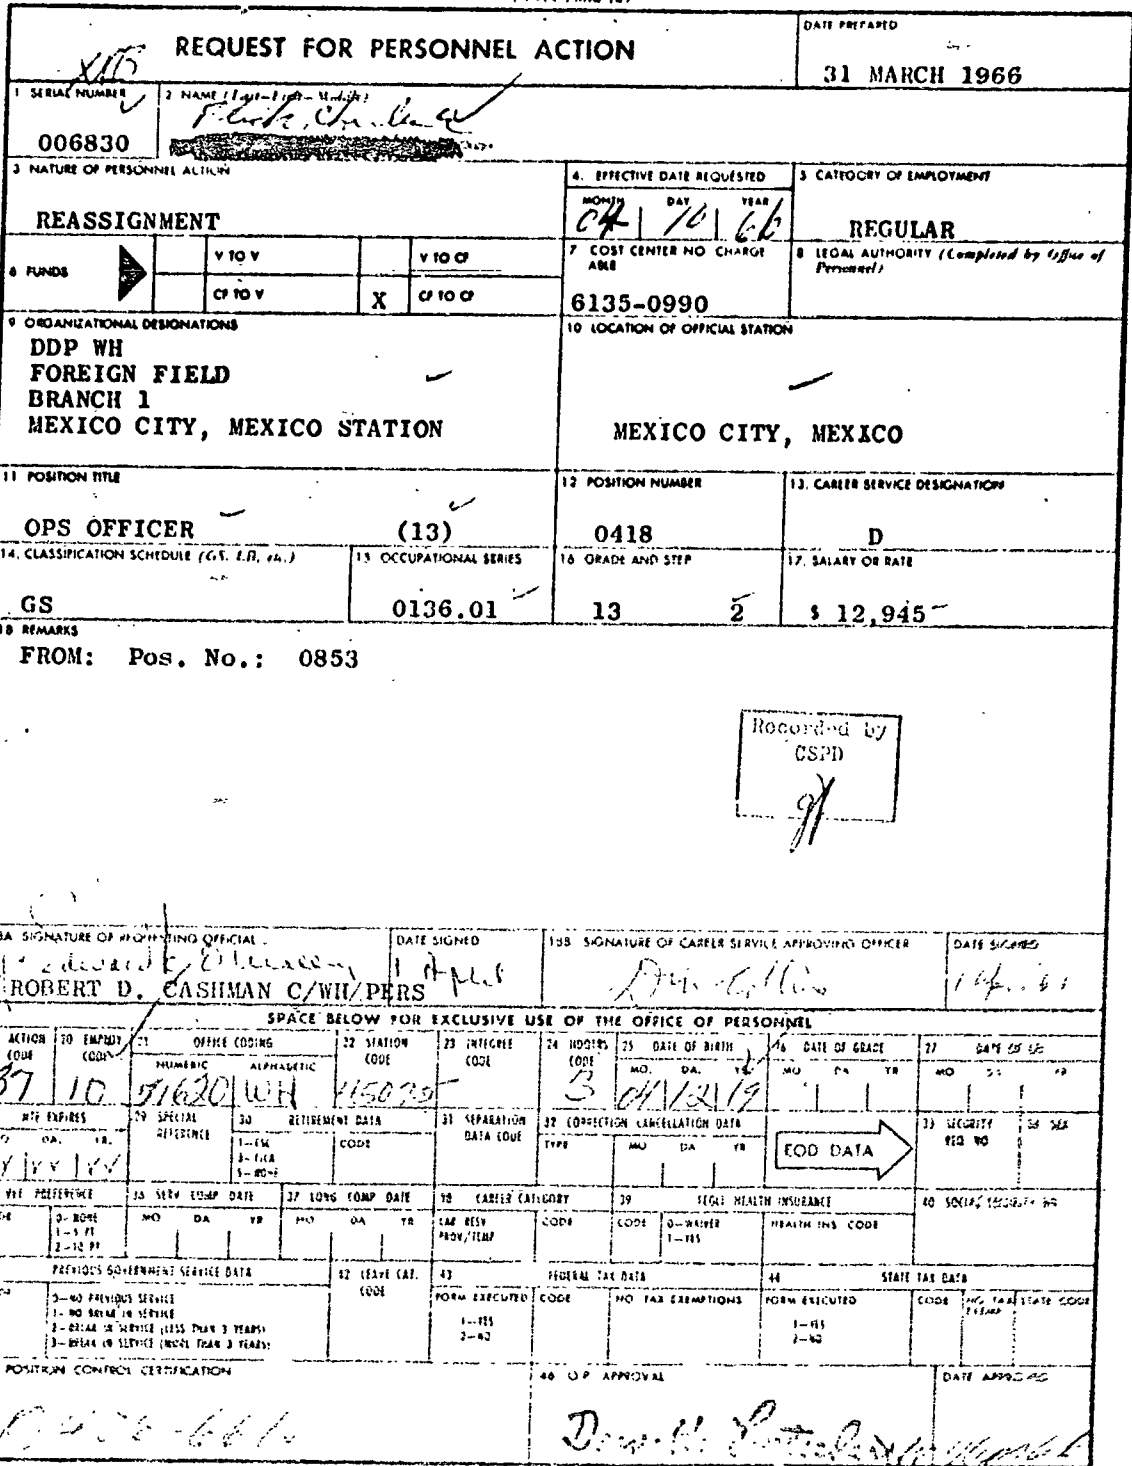 REQUEST FOR PERSONNEL ACTION
DATE PREPARED
31 MARCH 1966
1 SERIAL NUMBER
2 NAME (Last-First-Middle)
006830
3 NATURE OF PERSONNEL ACTION
4. EFFECTIVE DATE REQUESTED
5 CATEGORY OF EMPLOYMENT
MONTH DAY YEAR
REASSIGNMENT
04 10 66
REGULAR
6 FUNDS
V TO V
V TO CF
CF TO V
X
CF TO CF
7 COST CENTER NO CHARGE
ABLE
6135-0990
8 LEGAL AUTHORITY (Completed by Office of
Personnel)
9 ORGANIZATIONAL DESIGNATIONS
10 LOCATION OF OFFICIAL STATION
DDP WH
FOREIGN FIELD
BRANCH 1
MEXICO CITY, MEXICO STATION
MEXICO CITY, MEXICO
11 POSITION TITLE
12 POSITION NUMBER
13. CAREER SERVICE DESIGNATION
OPS OFFICER (13)
0418
D
14. CLASSIFICATION SCHEDULE (GS, LB, etc.)
15 OCCUPATIONAL SERIES
16 GRADE AND STEP
17. SALARY OR RATE
GS
0136.01
13 2
$ 12,945
18 REMARKS
FROM: Pos. No.: 0853
Recorded by
CSPD
8A SIGNATURE OF REQUESTING OFFICIAL
DATE SIGNED
18B SIGNATURE OF CAREER SERVICE APPROVING OFFICER
DATE SIGNED
ROBERT D. CASHMAN C/WH/PERS
SPACE BELOW FOR EXCLUSIVE USE OF THE OFFICE OF PERSONNEL
ACTION CODE
20 EMPLOY CODE
21 OFFICE CODING
NUMERIC ALPHABETIC
22 STATION CODE
23 INTEGREE CODE
24 HDQTRS CODE
25 DATE OF BIRTH
MO. DA. YR.
26 DATE OF GRADE
MO DA YR
27 DATE OF LEI
MO DA YR
37 10 51620 WH 45075 3 04 12 19
NTE EXPIRES
29 SPECIAL REFERENCE
30 RETIREMENT DATA
CODE
31 SEPARATION DATA CODE
32 CORRECTION CANCELLATION DATA
TYPE MO DA YR
EOD DATA
33 SECURITY REQ NO
34 SEX
VET PREFERENCE
0-NONE
1-5 PT
2-10 PT
36 SERV COMP DATE
MO DA YR
37 LONG COMP DATE
MO DA YR
38 CAREER CATEGORY
CAR RESV
PROV/TEMP
CODE
39 FEGLI HEALTH INSURANCE
CODE
0-WAIVER
1-YES
HEALTH INS CODE
40 SOCIAL SECURITY NO
PREVIOUS GOVERNMENT SERVICE DATA
0-NO PREVIOUS SERVICE
1-NO BREAK IN SERVICE
2-BREAK IN SERVICE (LESS THAN 3 YEARS)
3-BREAK IN SERVICE (MORE THAN 3 YEARS)
42 LEAVE CAT. CODE
43 FEDERAL TAX DATA
FORM EXECUTED
1-YES
2-NO
CODE
NO TAX EXEMPTIONS
44 STATE TAX DATA
FORM EXECUTED
1-YES
2-NO
CODE
NO. TAX EXEMP
STATE CODE
POSITION CONTROL CERTIFICATION
46 O.P. APPROVAL
DATE APPROVED